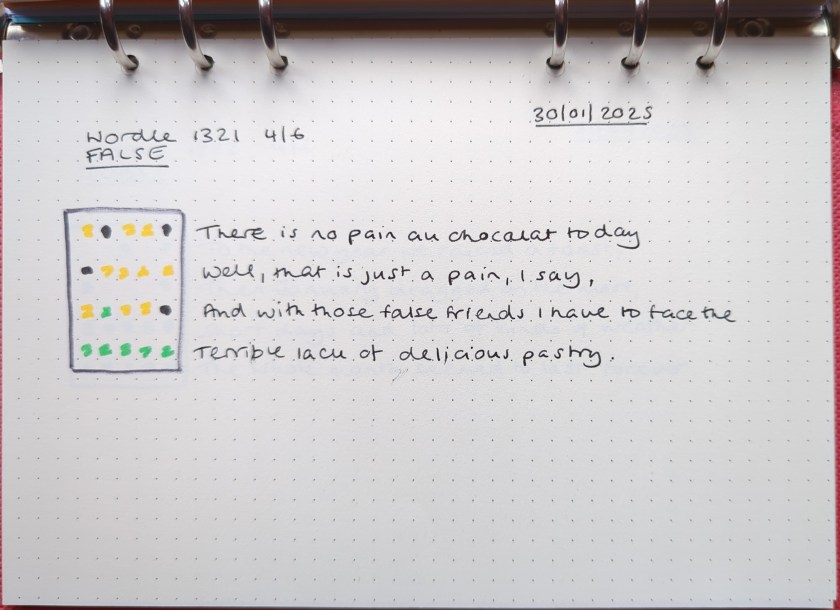 30/01/2025
Wordle 1321 4/6
FALSE
There is no pain au chocolat today.
Well, that is just a pain, I say,
And with those false friends I have to face the
Terrible lack of delicious pastry.